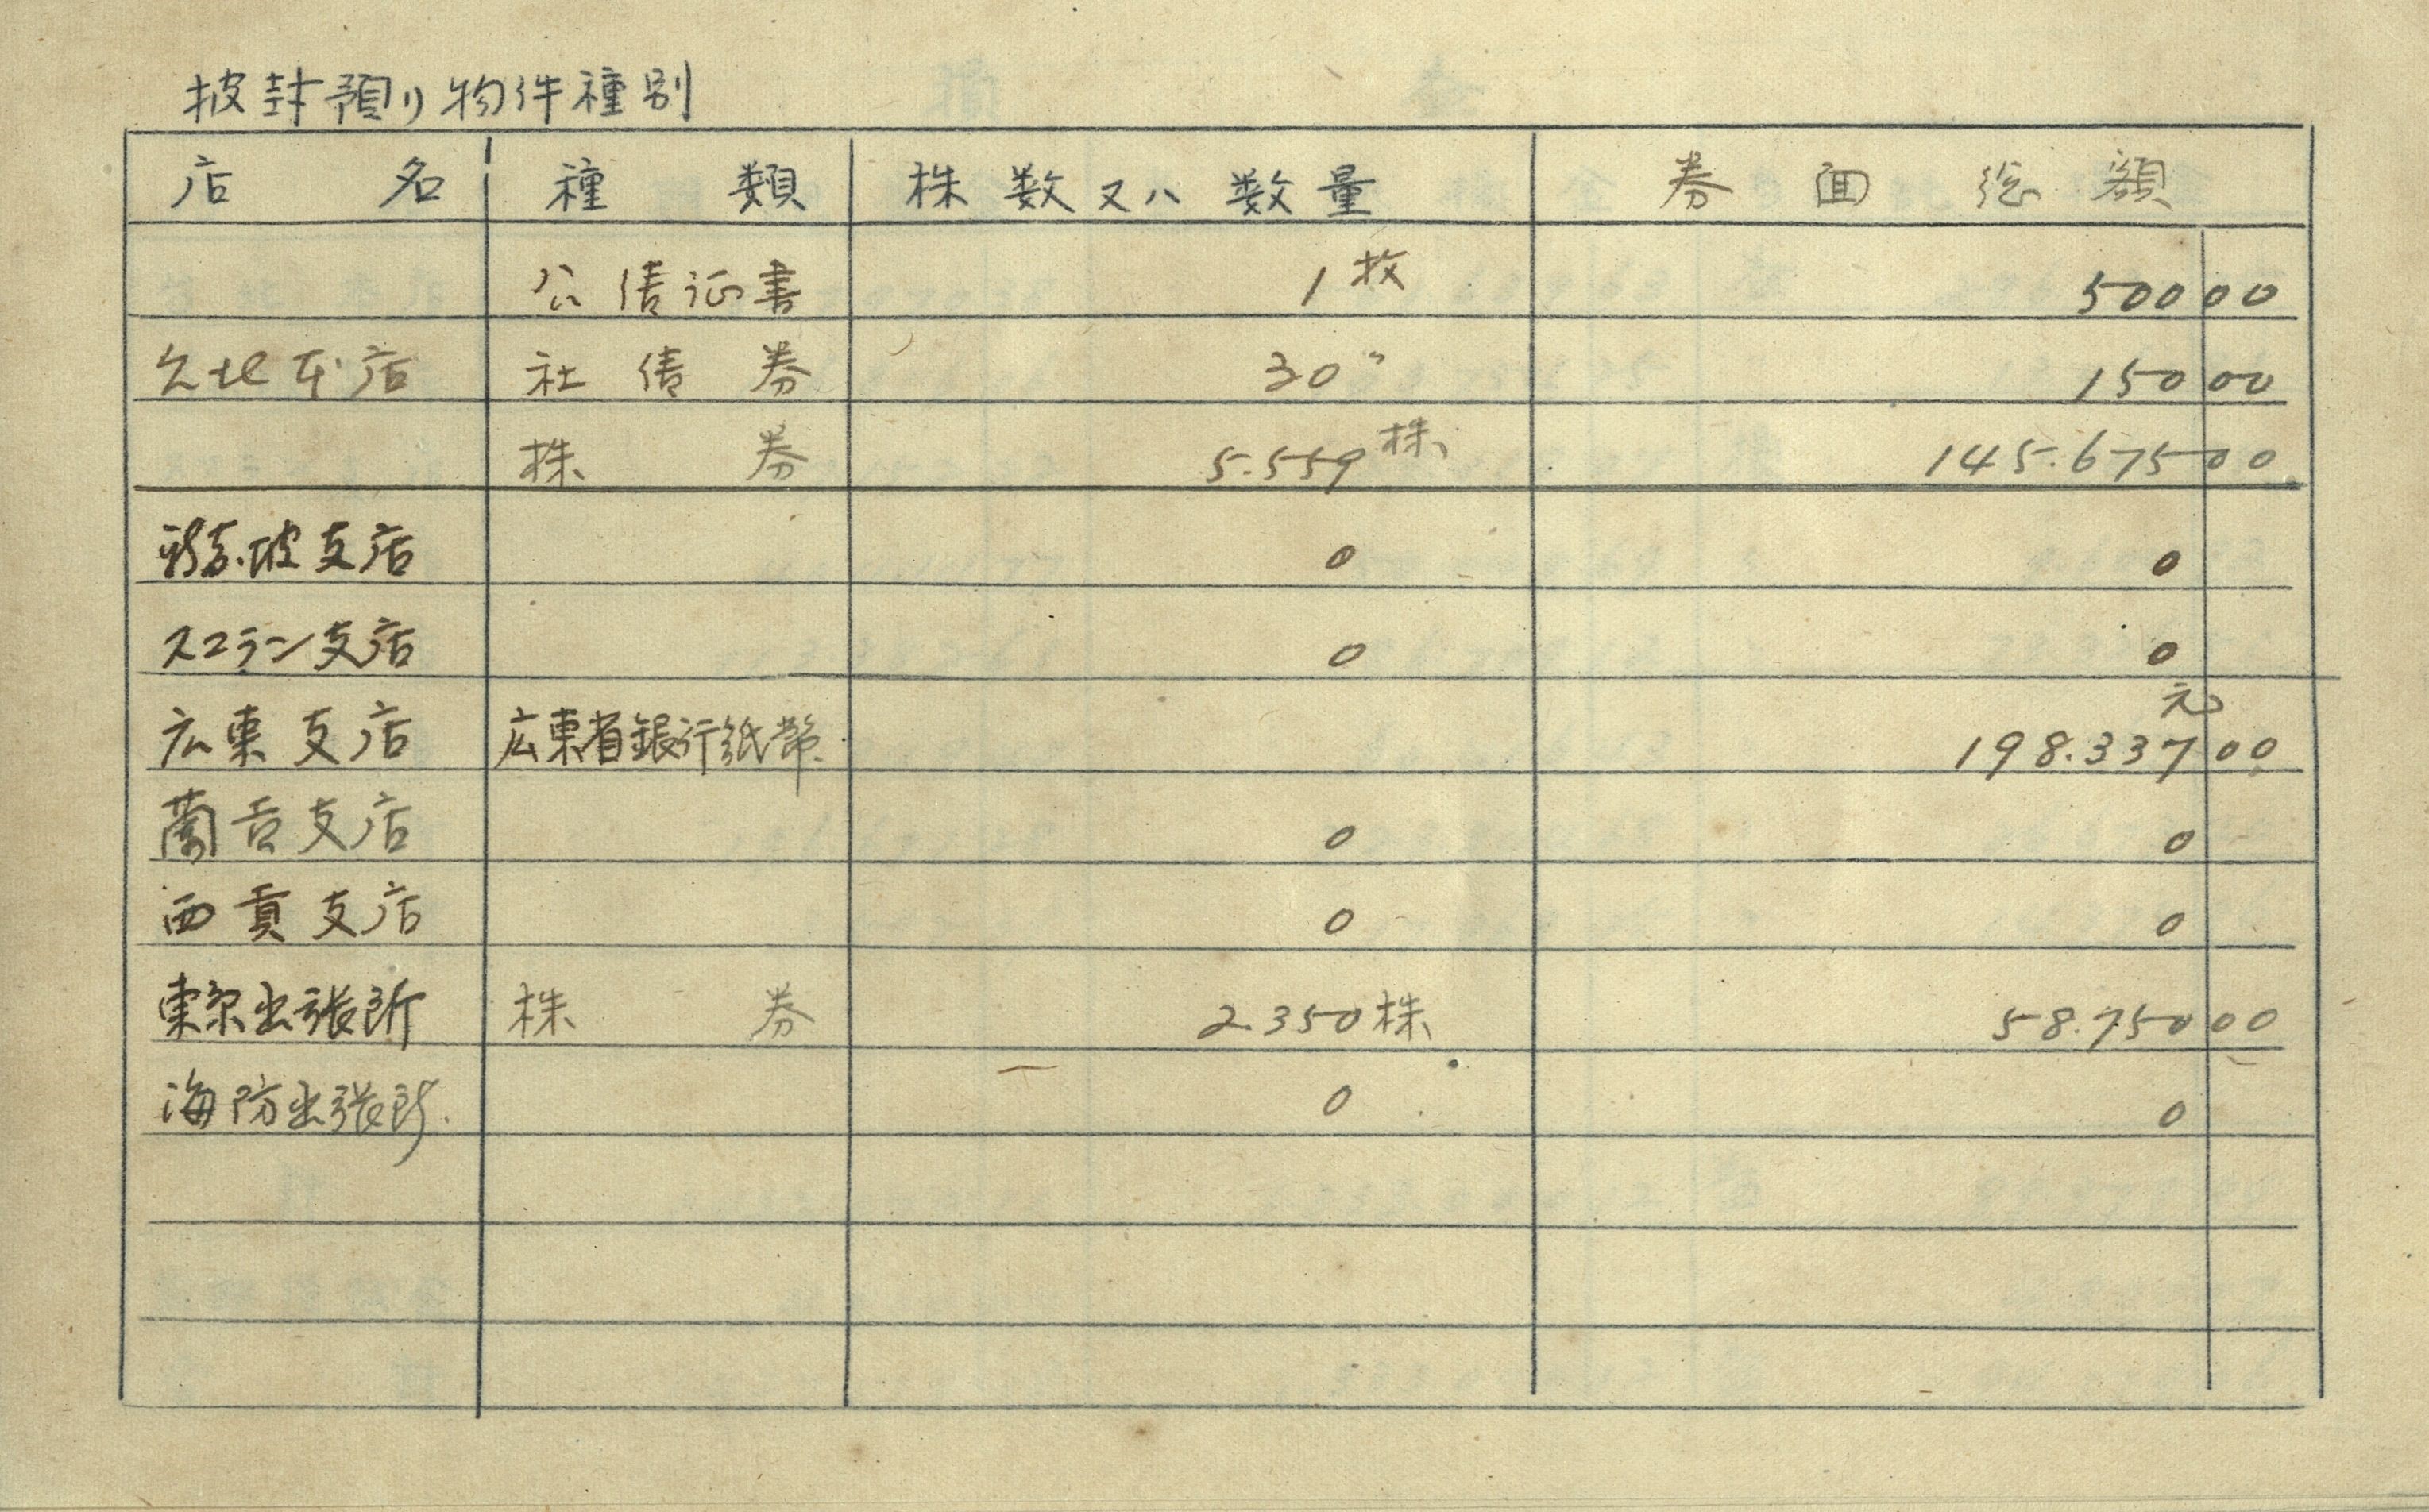 披封預リ物件種別
店名 種類 株数又ハ数量 券面総額
公債証書 1枚 500 00
台北本店 社債券 30〃 150 00
株券 5.559株 145.675 00
新嘉坡支店 0 0
スマラン支店 0 0
広東支店 広東省銀行紙幣. 元 198.337 00
蘭貢支店 0 0
西貢支店 0 0
東京出張所 株券 2.350株 58.750 00
海防出張所. 0 0